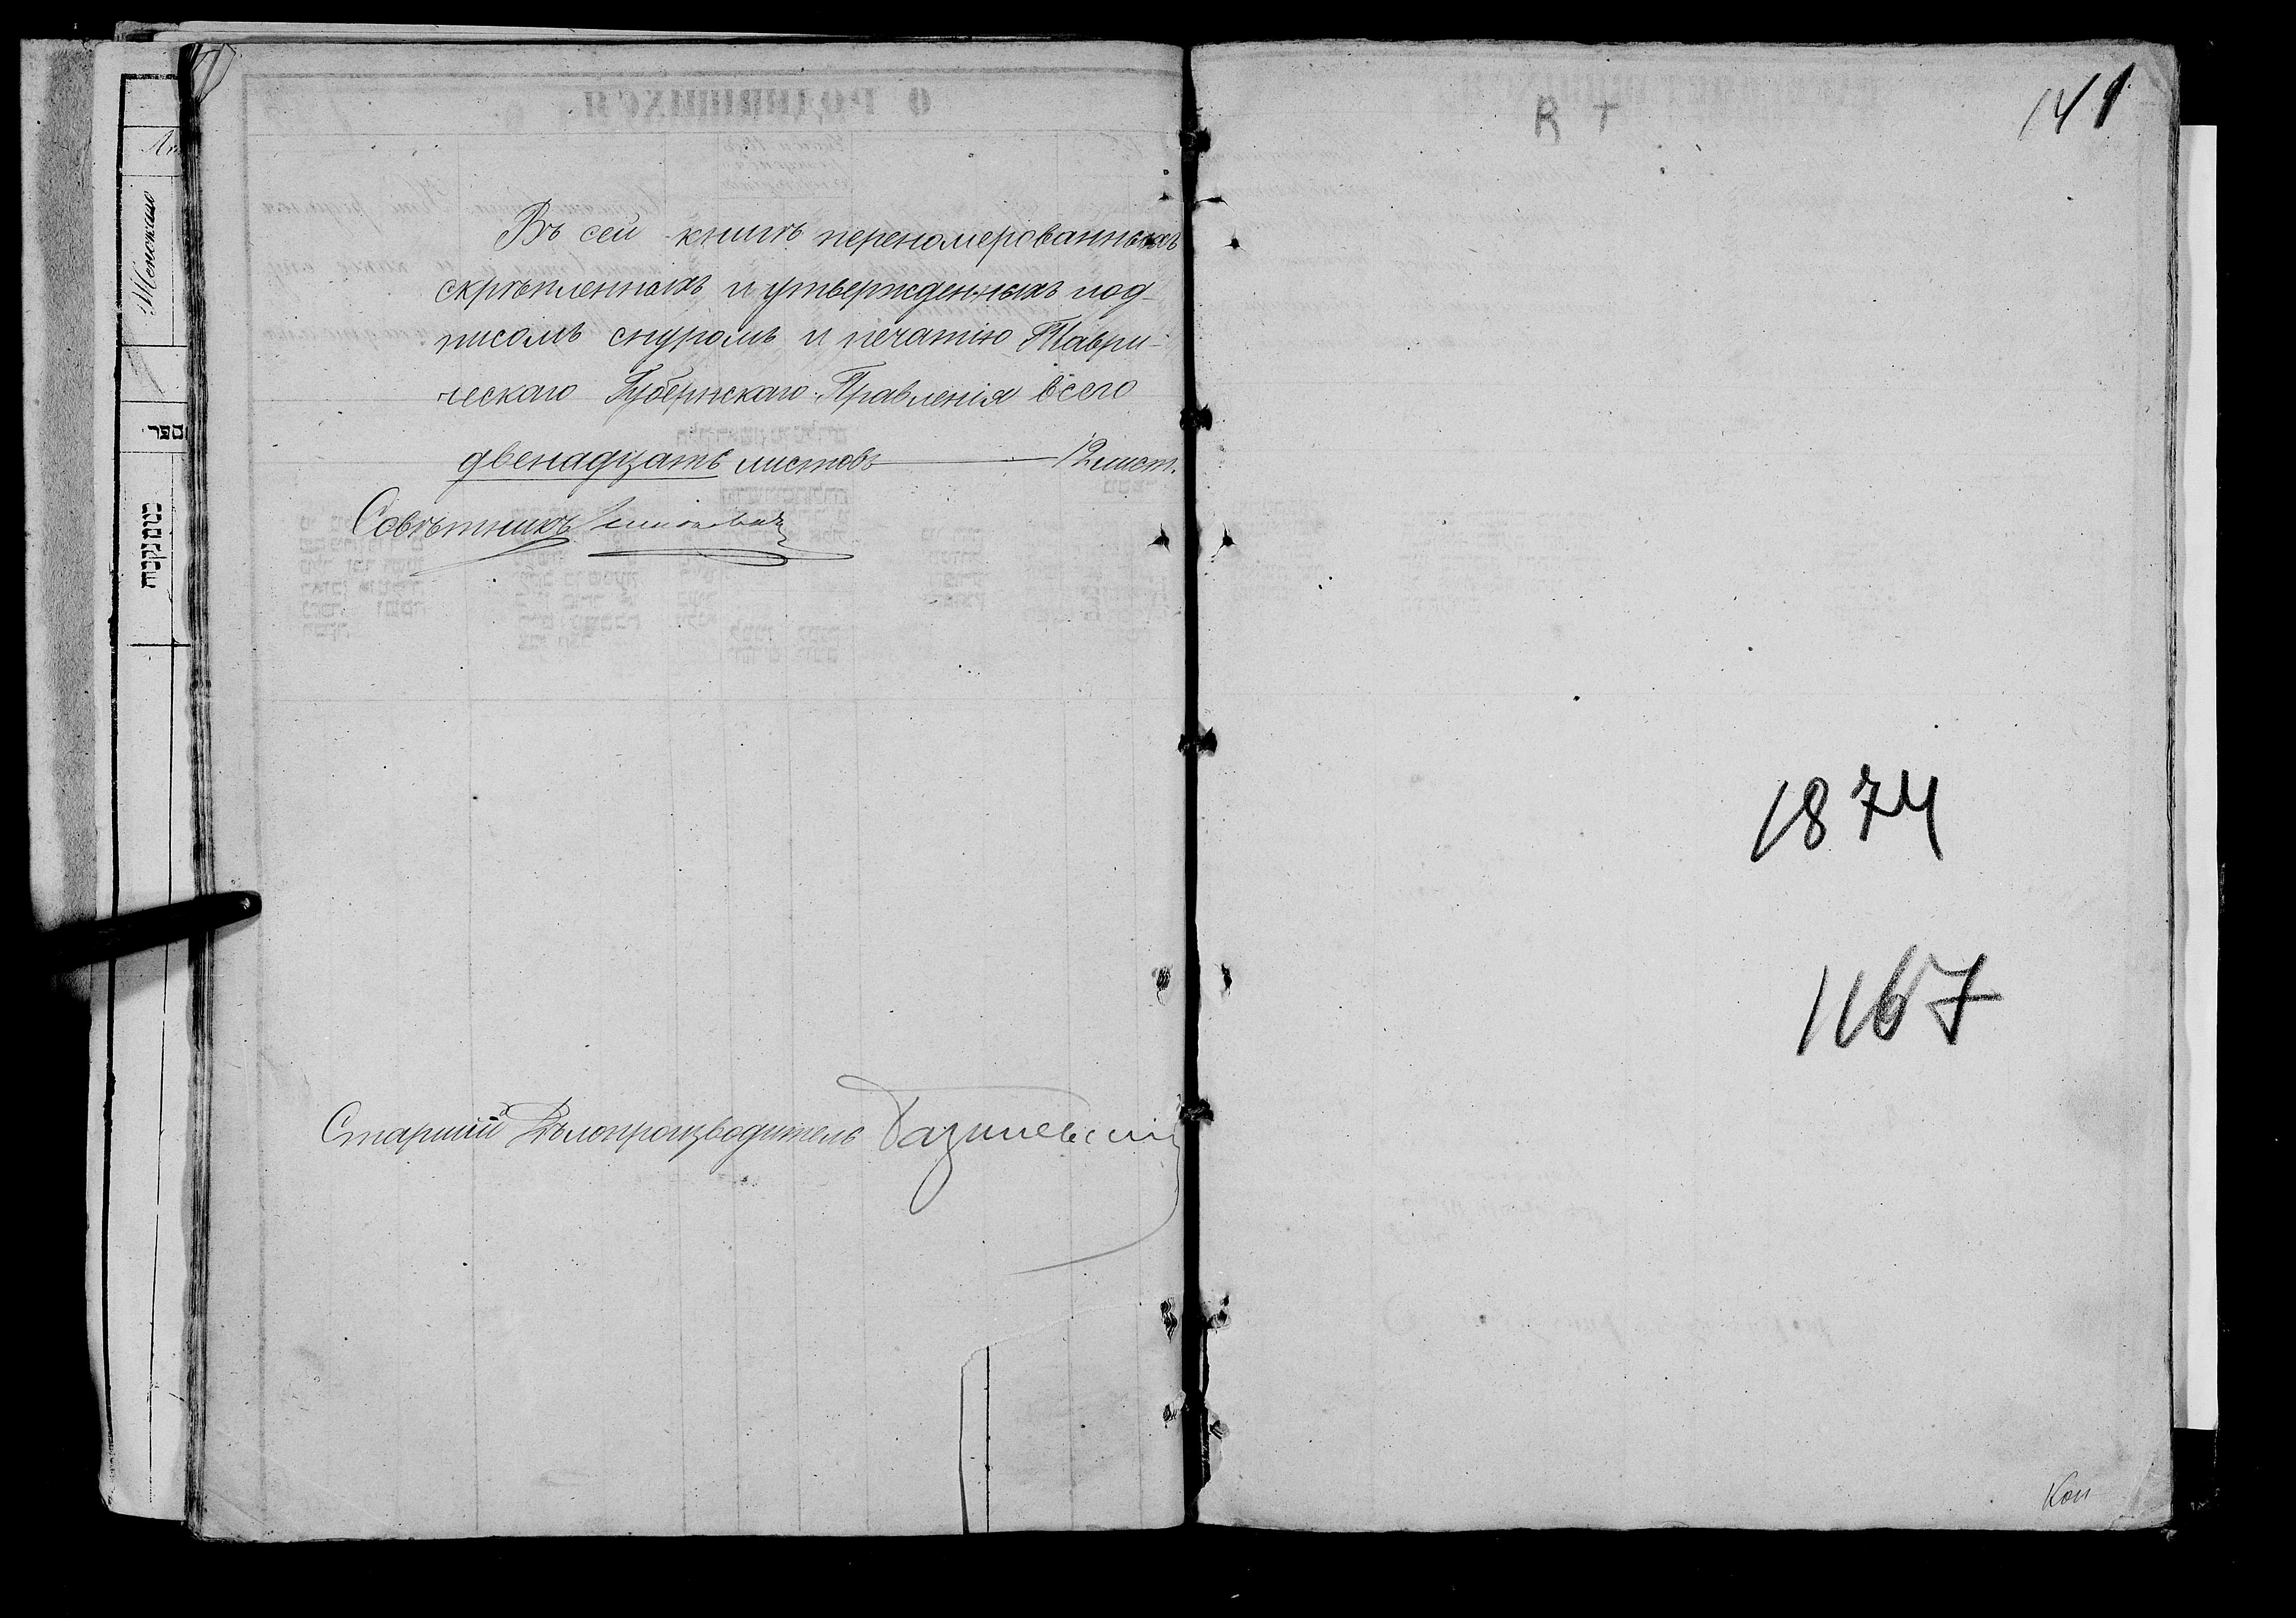 Въ сей книгѣ переномерованныхъ
скрѣпленныхъ и утвержденныхъ под-
писомъ снуромъ и печатію Таври-
ческаго Губернскаго Правленія всего
двенадцать листовъ 12 лист.
Совѣтникъ
Старшій Дѣлопроизводитель
Женскаго
מספר
נקבות
R T
141
1874
1167
Кон